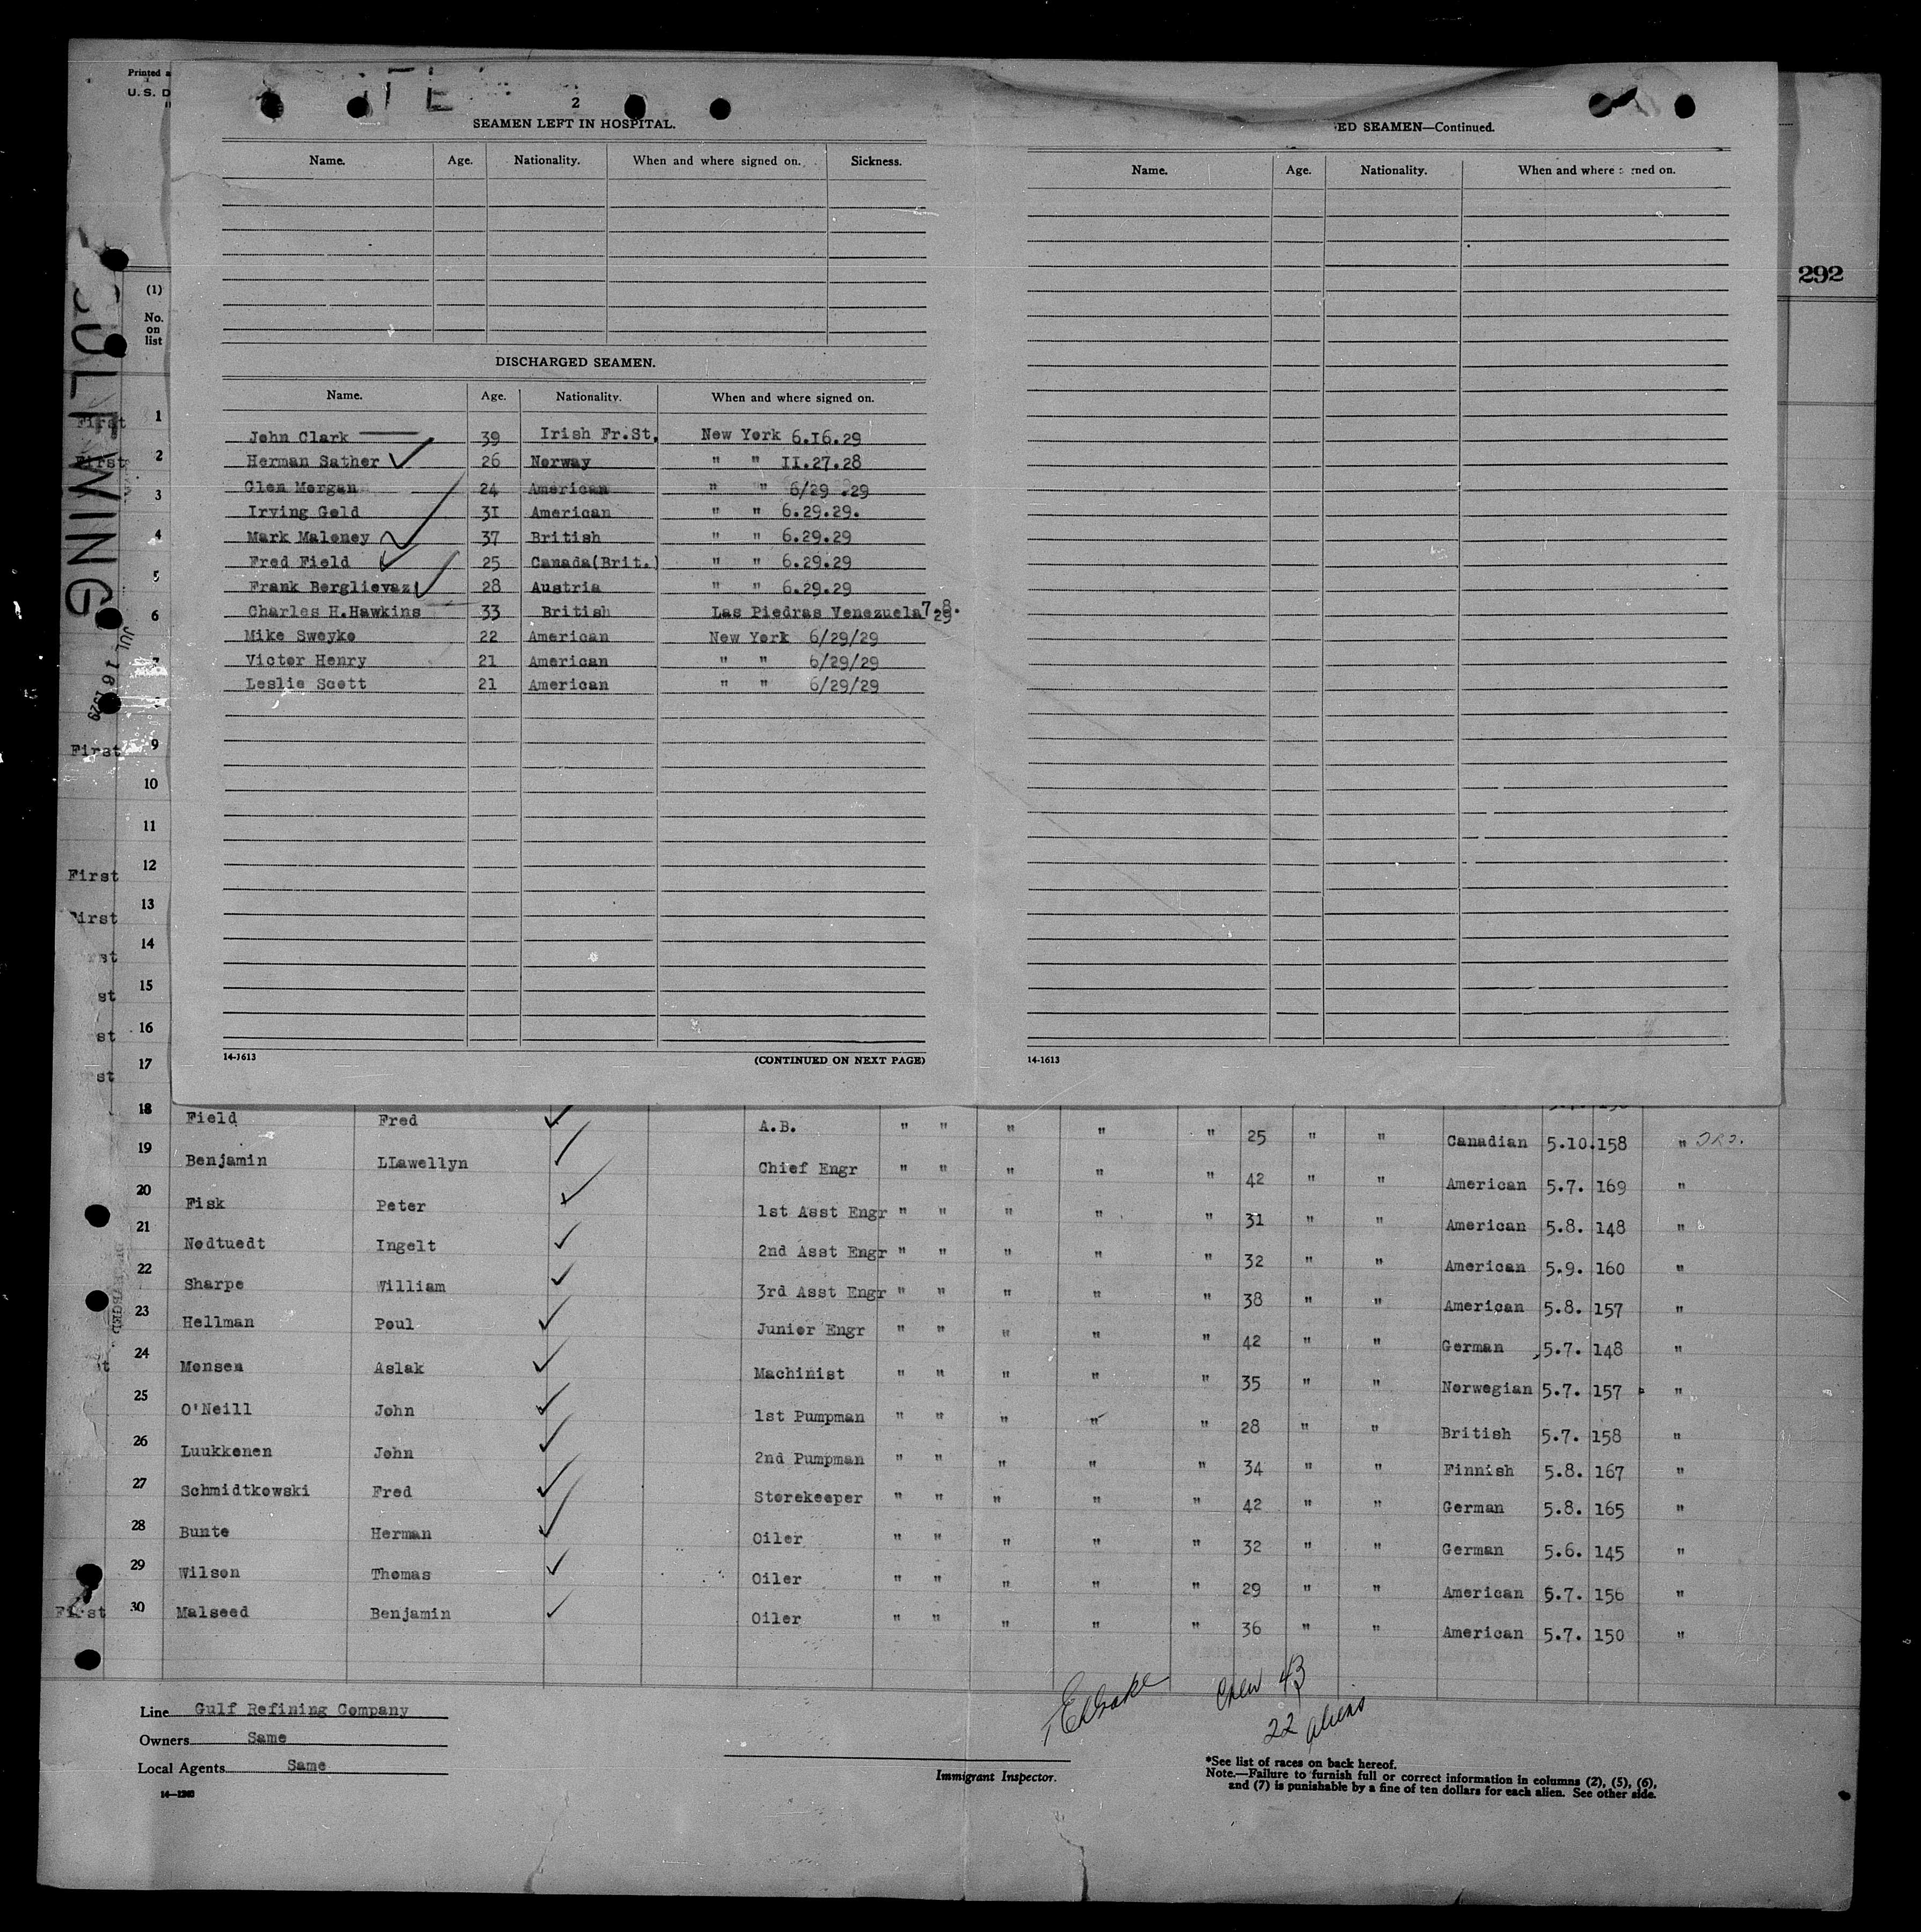 Printed a
U. S. D
2
SEAMEN LEFT IN HOSPITAL.
Name. Age. Nationality. When and where signed on. Sickness.
DISCHARGED SEAMEN.
Name. Age. Nationality. When and where signed on.
John Clark 39 Irish Fr.St. New York 6.16.29
Herman Sather 26 Norway " " 11.27.28
Glen Morgan 24 American " " 6/29 .29
Irving Gold 31 American " " 6.29.29.
Mark Maloney 37 British " " 6.29.29
Fred Field 25 Canada(Brit.) " " 6.29.29
Frank Berglievaz 28 Austria " " 6.29.29
Charles H.Hawkins 33 British Las Piedras Venezuela 7.8.29
Mike Sweyko 22 American New York 6/29/29
Victor Henry 21 American " " 6/29/29
Leslie Scott 21 American " " 6/29/29
14-1613 (CONTINUED ON NEXT PAGE)
ED SEAMEN—Continued.
Name. Age. Nationality. When and where ned on.
14-1613
292
GULFWING
JUL 16 1929
(1)
No.
on
list
First 1
First 2
3
4
5
6
7
First 9
10
11
First 12
First 13
rst 14
st 15
st 16
rst 17
18 Field Fred A.B. " " " " " 25 " " Canadian 5.10. 158 "
19 Benjamin LLawellyn Chief Engr " " " " " 42 " " American 5.7. 169 "
20 Fisk Peter 1st Asst Engr " " " " " 31 " " American 5.8. 148 "
21 Nodtuedt Ingelt 2nd Asst Engr " " " " " 32 " " American 5.9. 160 "
22 Sharpe William 3rd Asst Engr " " " " " 38 " " American 5.8. 157 "
23 Hellman Poul Junior Engr " " " " " 42 " " German 5.7. 148 "
24 Monsen Aslak Machinist " " " " " 35 " " Norwegian 5.7. 157 "
25 O'Neill John 1st Pumpman " " " " " 28 " " British 5.7. 158 "
26 Luukkonen John 2nd Pumpman " " " " " 34 " " Finnish 5.8. 167 "
27 Schmidtkowski Fred Storekeeper " " " " " 42 " " German 5.8. 165 "
28 Bunte Herman Oiler " " " " " 32 " " German 5.6. 145 "
29 Wilson Thomas Oiler " " " " " 29 " " American 5.7. 156 "
First 30 Malseed Benjamin Oiler " " " " " 36 " " American 5.7. 150 "
Crew 43
22 aliens
Line Gulf Refining Company
Owners Same
Local Agents Same
14—1240
Immigrant Inspector.
*See list of races on back hereof.
Note.—Failure to furnish full or correct information in columns (2), (5), (6),
and (7) is punishable by a fine of ten dollars for each alien. See other side.